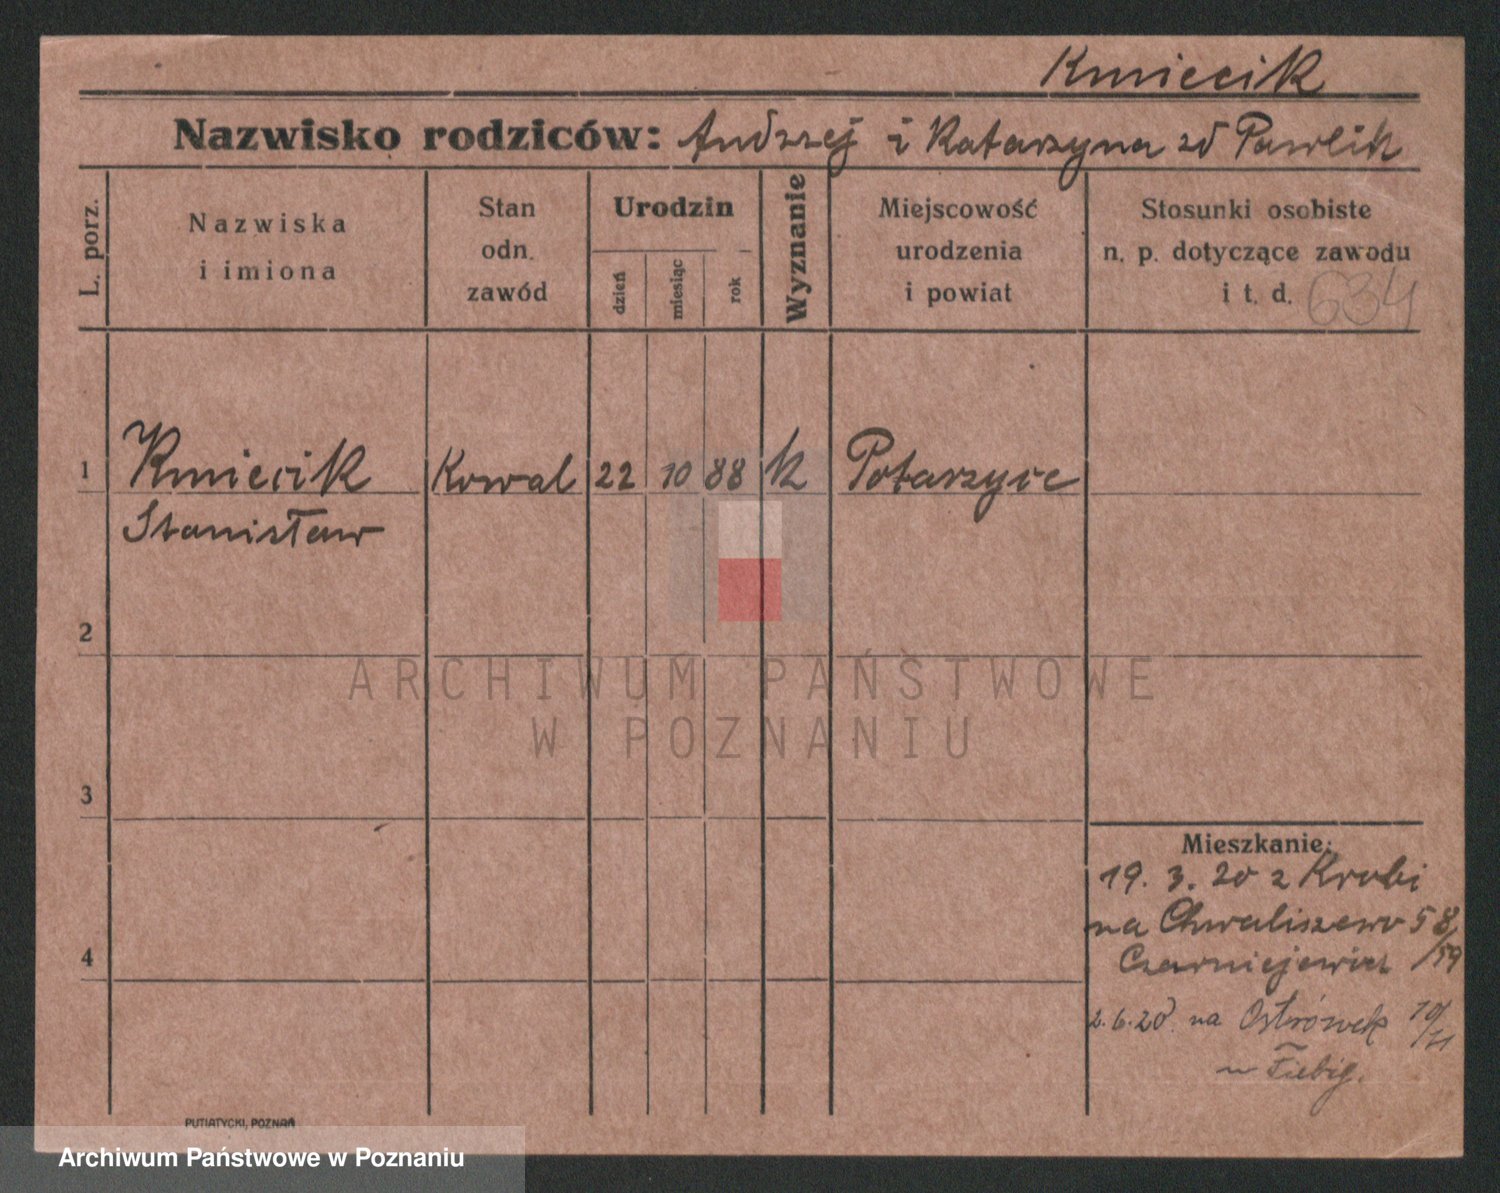 Kmiecik
Nazwisko rodziców: Andrzej i Katarzyna zd Pawlik
L. porz.
Nazwiska
i imiona
Stan
odn.
zawód
Urodzin
dzień
miesiąc
rok
Wyznanie
Miejscowość
urodzenia
i powiat
Stosunki osobiste
n. p. dotyczące zawodu
i t. d.
634
1 Kmiecik Kowal 22 10 88 k Potarzyce
Stanisław
2
ARCHIWUM PAŃSTWOWE
W POZNANIU
3
Mieszkanie:
19. 3. 20 z Krobi
na Chwaliszewo 58/59
4
2.6.20. na Ostrówek 10/11
Fiebig.
PUTIATYCKI, POZNAŃ
Archiwum Państwowe w Poznaniu